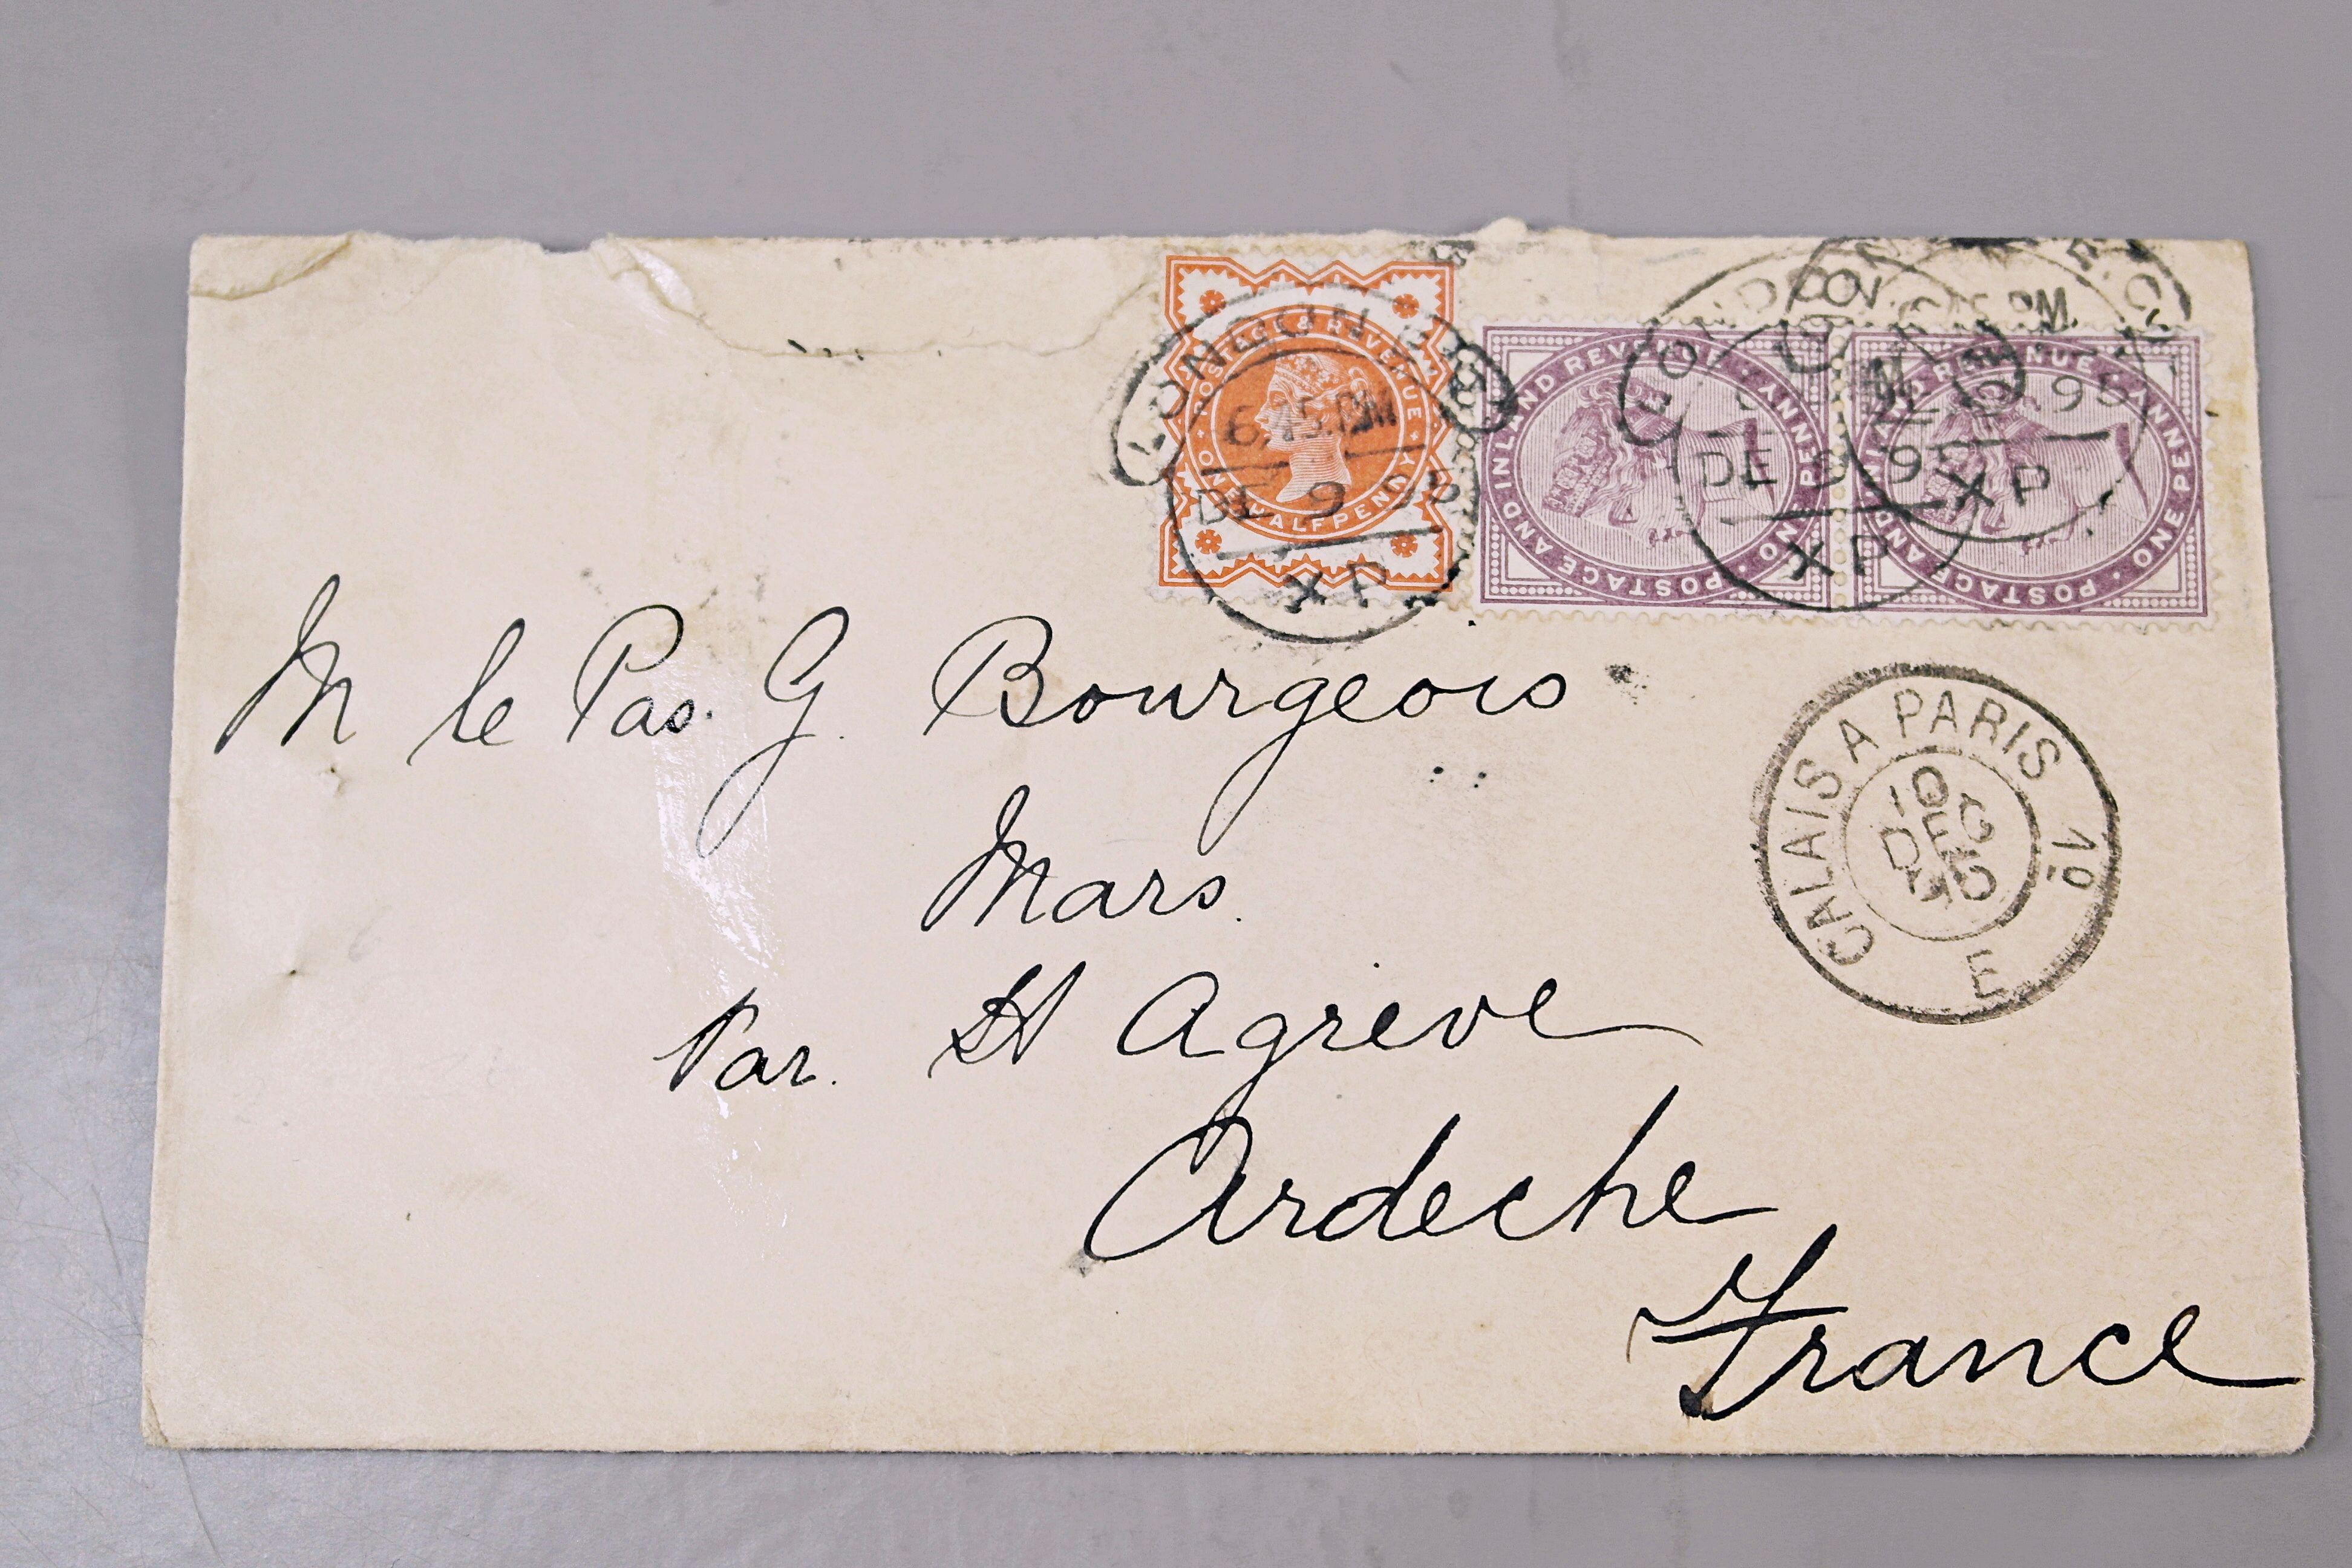 POSTAGE & REVENUE
ONE HALFPENNY
LONDON
6.45.PM
DE 9 95
XP
POSTAGE AND INLAND REVENUE
ONE PENNY
LONDON
DE 9 95
XP
POSTAGE AND INLAND REVENUE
ONE PENNY
E.C.
PM
95
XP
M le Pas. G. Bourgeois
Mars.
Par. St Agreve
Ardeche
France
CALAIS A PARIS 1º
10
DEC
95
E